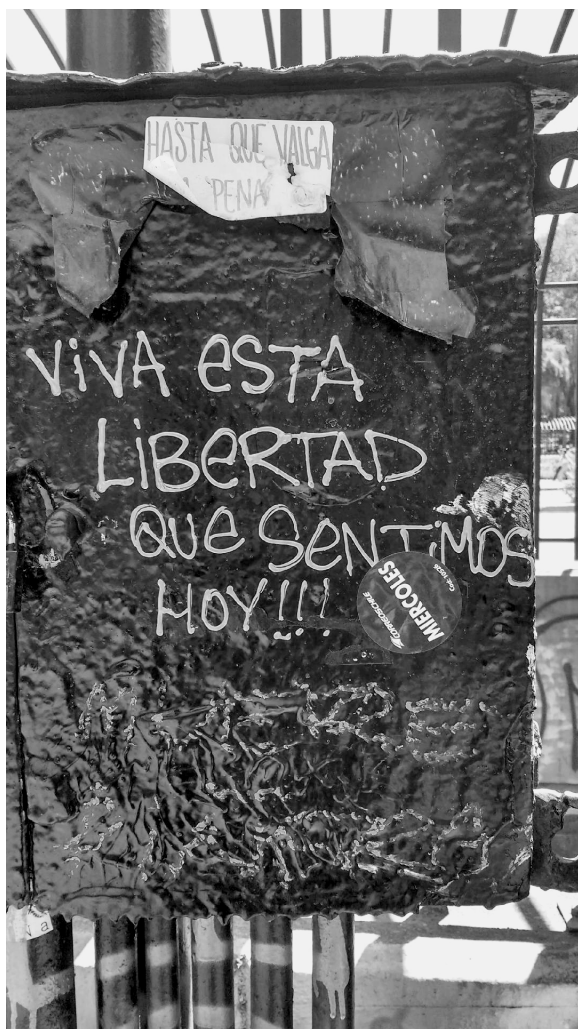 HASTA QUE VALGA
LA PENA
VIVA ESTA
LIBERTAD
QUE SENTIMOS
HOY!!!
MIERCOLES
CORREOSCHILE